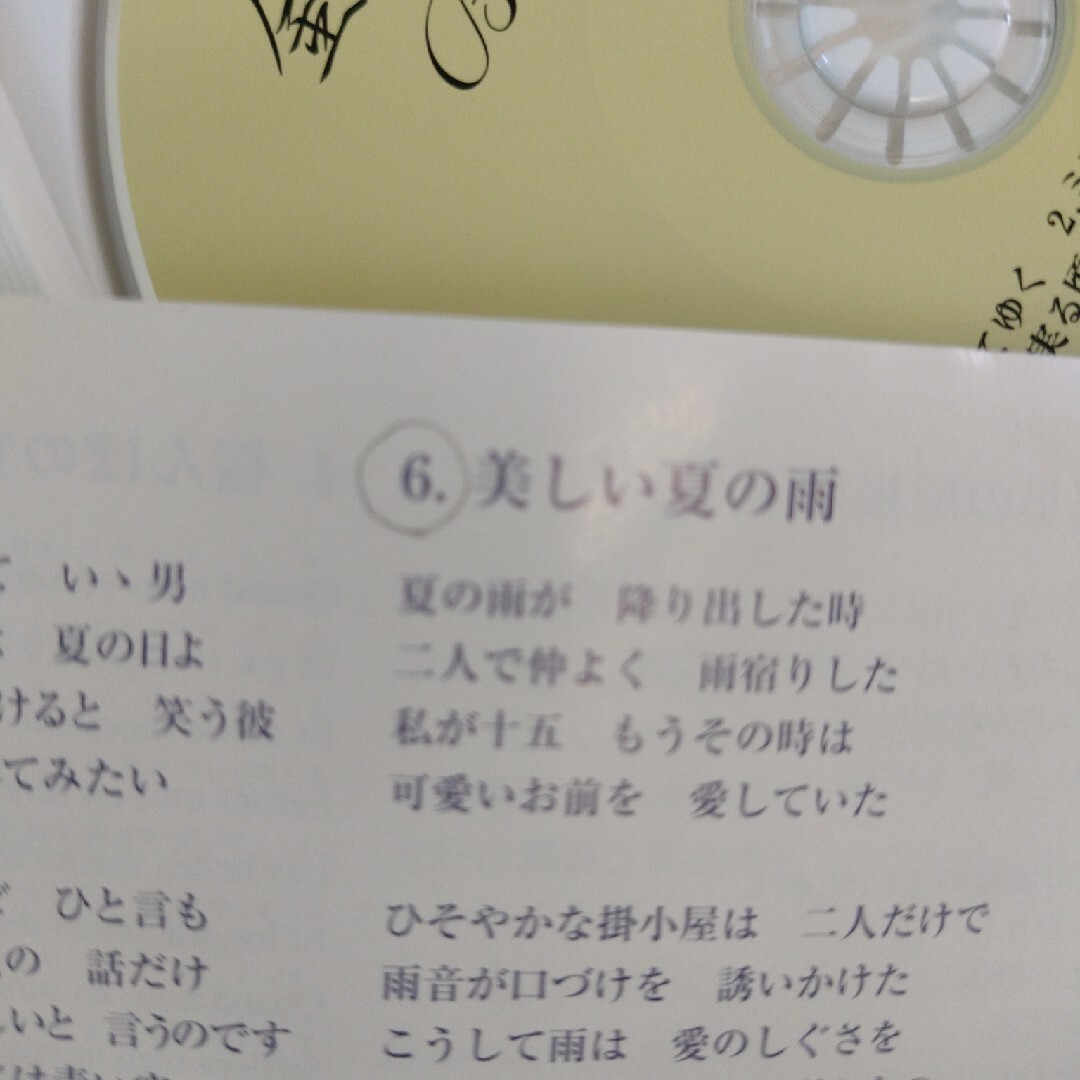 2.
てゆく
実る
6. 美しい夏の雨
夏の雨が 降り出した時
二人で仲よく 雨宿りした
私が十五 もうその時は
可愛いお前を 愛していた
ひそやかな掛小屋は 二人だけで
雨音が口づけを 誘いかけた
こうして雨は 愛のしぐさを
て いゝ男
夏の日よ
けると 笑う彼
てみたい
ひと言も
の 話だけ
いと 言うのです